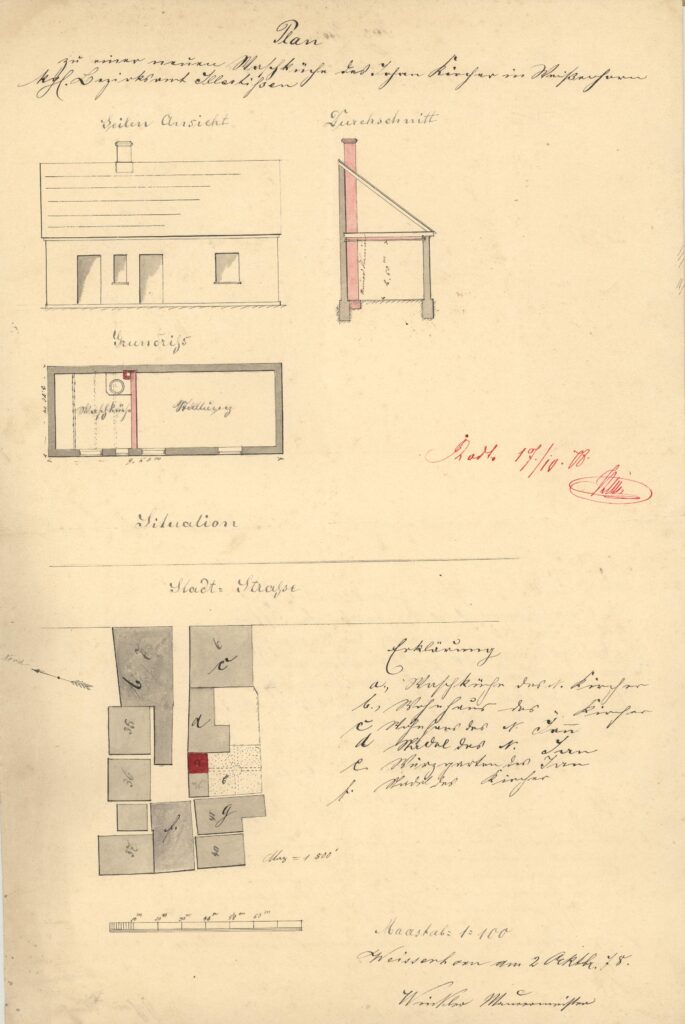 Plan
zu einer neuen Waschküche des Johan Kircher in Weißenhorn
Kgl. Bezirksamt Illertißen
Seiten Ansicht
Durchschnitt
Grundriß
Waschküche
Stallung
Revdt. 17/10. 78.
Situation
Stadt= Straße
Erklärung
a., Waschküche des N. Kircher
b., Wohnhaus des " Kircher
c Wohnhaus des N. Jann
d Stadel des N. Jann
e. Wurzgarten des Jann
f. Stadel des Kircher
b
c
d
a
e
f.
g
10m 20m 30m 40m 50m 60m
Maastab= 1=100
Weissenhorn am 2 Oktbr. 78.
Winkler Maurermeister